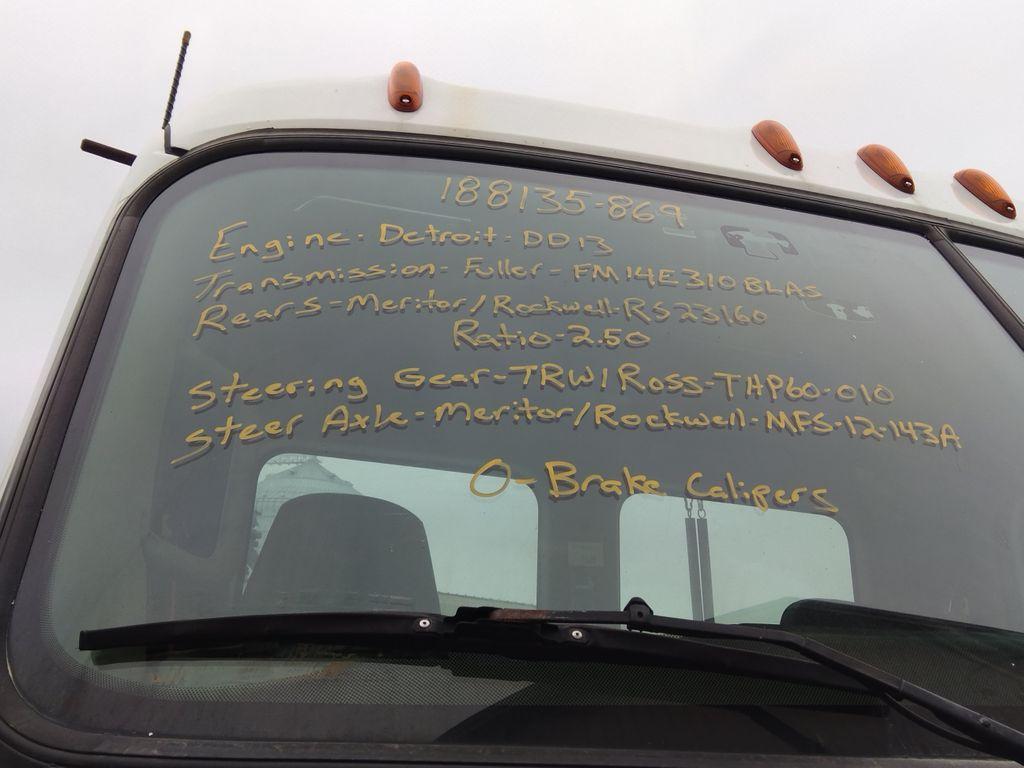 188135-869
Engine - Detroit - DD13
Transmission - Fuller - FM14E310BLAS
Rears - Meritor/Rockwell - RS23160
Ratio - 2.50
Steering Gear - TRW/Ross - THP60-010
Steer Axle - Meritor/Rockwell - MFS-12-143A
0 - Brake Calipers